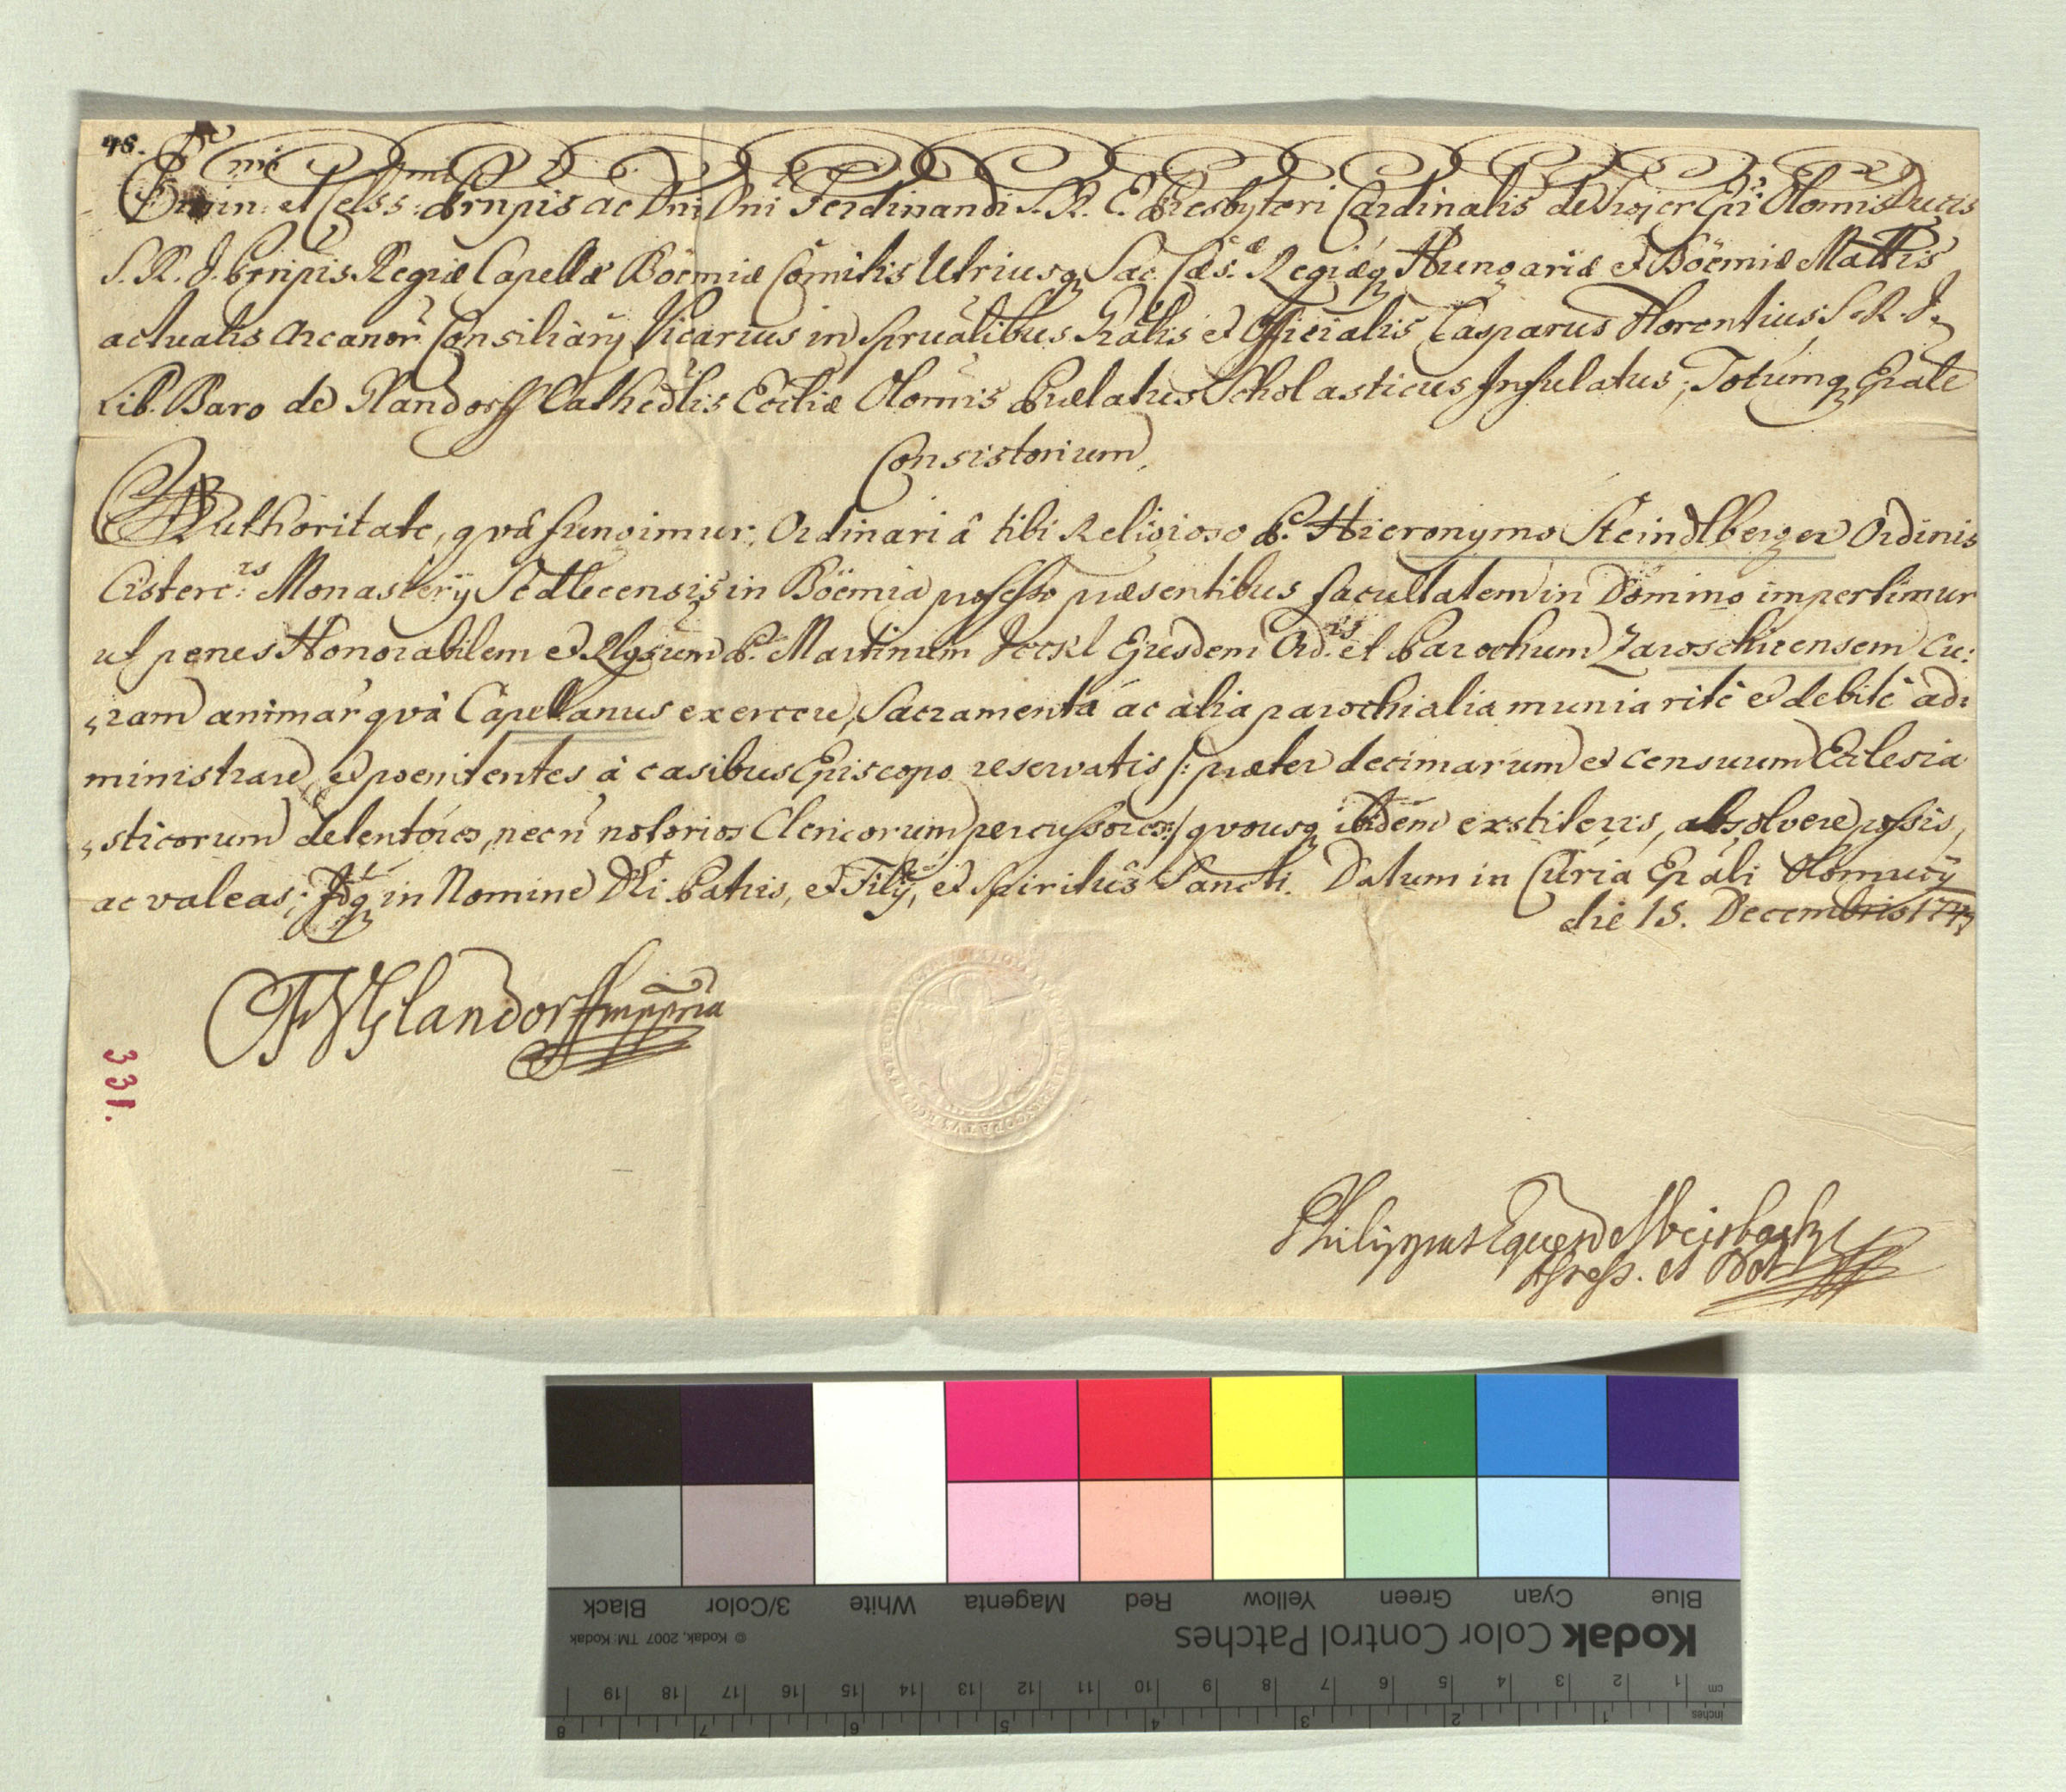 98.
Emin: mi et Celss: mi Prnpis ac Dni Dni Ferdinandi S. R. E. Presbyteri Cardinalis de Trojer Epi Olomis Ducis
S. R. J. Prnpis Regiæ Capellæ Böemiæ Comitis Utriusq Sac. Cæs. Regiæq Hungariæ et Böemiæ Mattis
actualis Arcanor Consiliarÿ Vicarius in Sprualibus Gralis et Officialis Casparus Florentius S. R. J.
Lib. Baro de Glandorff Cathedlis Eccliæ Olomis Prælatus Scholasticus Infulatus; Totumq Epale
Consistorium,
Authoritate, qvâ fungimur, Ordinariâ tibi Religioso P. Hieronymo Steindlberger Ordinis
Cisterc: is Monasterÿ Sedlecensis in Böemia professo præsentibus facultatem in Domino impertimur
ut penes Honorabilem et Rlgsum P. Martinum Jockl Ejusdem Ord. is et Parochum Zaroschicensem Cu:
ram animar qvà Capellanus exercere, Sacramenta ac alia parochialia munia ritè et debitè ad:
ministrare, et poenitentes à casibus Episcopo reservatis /: præter decimarum et censuum Ecclesia
sticorum detentores, necn notorios Clericorum percussores :/ qvousq ibidem exstiteris, absolvere possis,
ac valeas; Idq in Nomine DEi Patris, et Filÿ, et Spiritûs Sancti. Datum in Curia Epali Olomucÿ
die 15. Decembris 1747
CFVGlandorff mppria
331.
Philippus Eques de Weisbach
Assess. et Not
Blue
Cyan
Green
Yellow
Red
Magenta
White
3/Color
Black
Kodak Color Control Patches
© Kodak, 2007 TM: Kodak
cm 1 2 3 4 5 6 7 8 9 10 11 12 13 14 15 16 17 18 19
inches 1 2 3 4 5 6 7 8